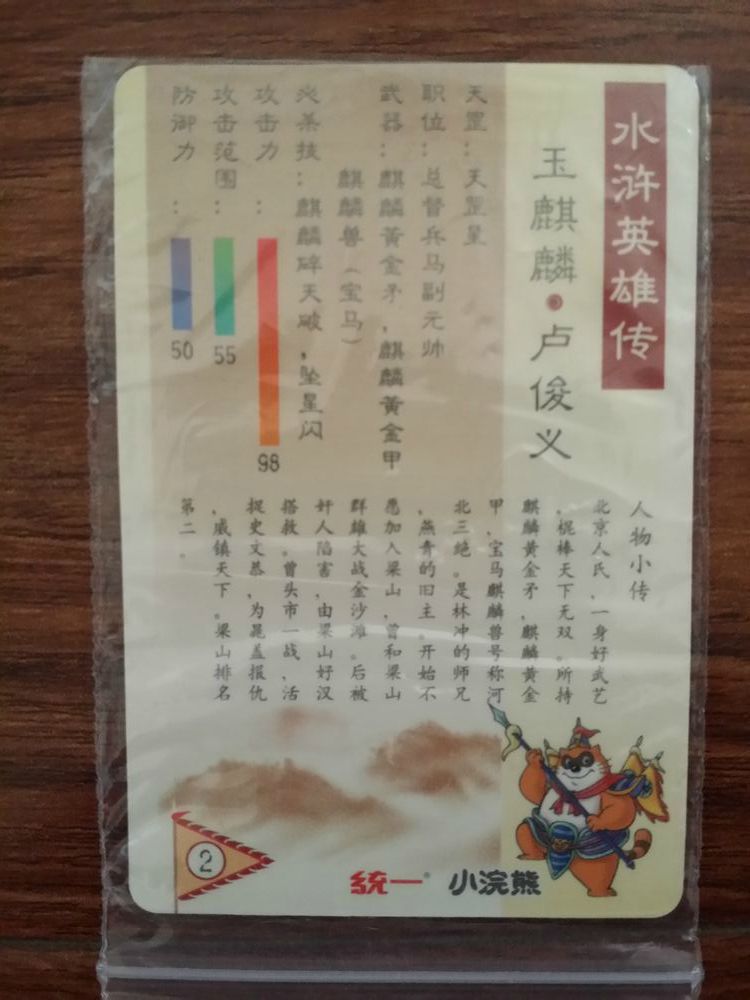 水浒英雄传
玉麒麟·卢俊义
天罡：天罡星
职位：总督兵马副元帅
武器：麒麟黄金矛，麒麟黄金甲
麒麟兽（宝马）
必杀技：麒麟碎天破，坠星闪
攻击力：
98
攻击范围：
55
防御力：
50
人物小传
北京人氏，一身好武艺
，棍棒天下无双。所持
麒麟黄金矛，麒麟黄金
甲，宝马麒麟兽号称河
北三绝。是林冲的师兄
，燕青的旧主。开始不
愿加入梁山，曾和梁山
群雄大战金沙滩。后被
奸人陷害，由梁山好汉
搭救。曾头市一战，活
捉史文恭，为晁盖报仇
，威镇天下。梁山排名
第二。
2
統一 小浣熊